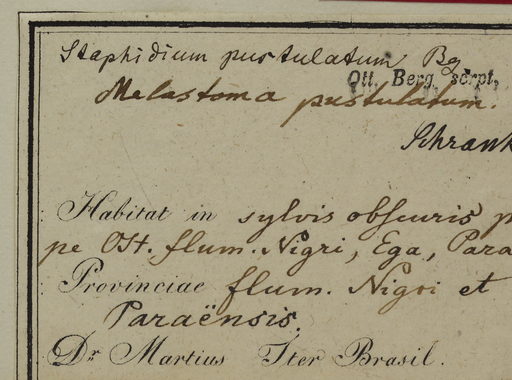 Staphidium pustulatum Bg
Ott. Berg. scrpt.
Melastoma pustulatum.
Schrank
Habitat in sylvis obscuris p
pe Ost. flum. Nigri, Ega, Para
Provinciae flum. Nigri et
Paraënsis.
Dr Martius Iter Brasil.